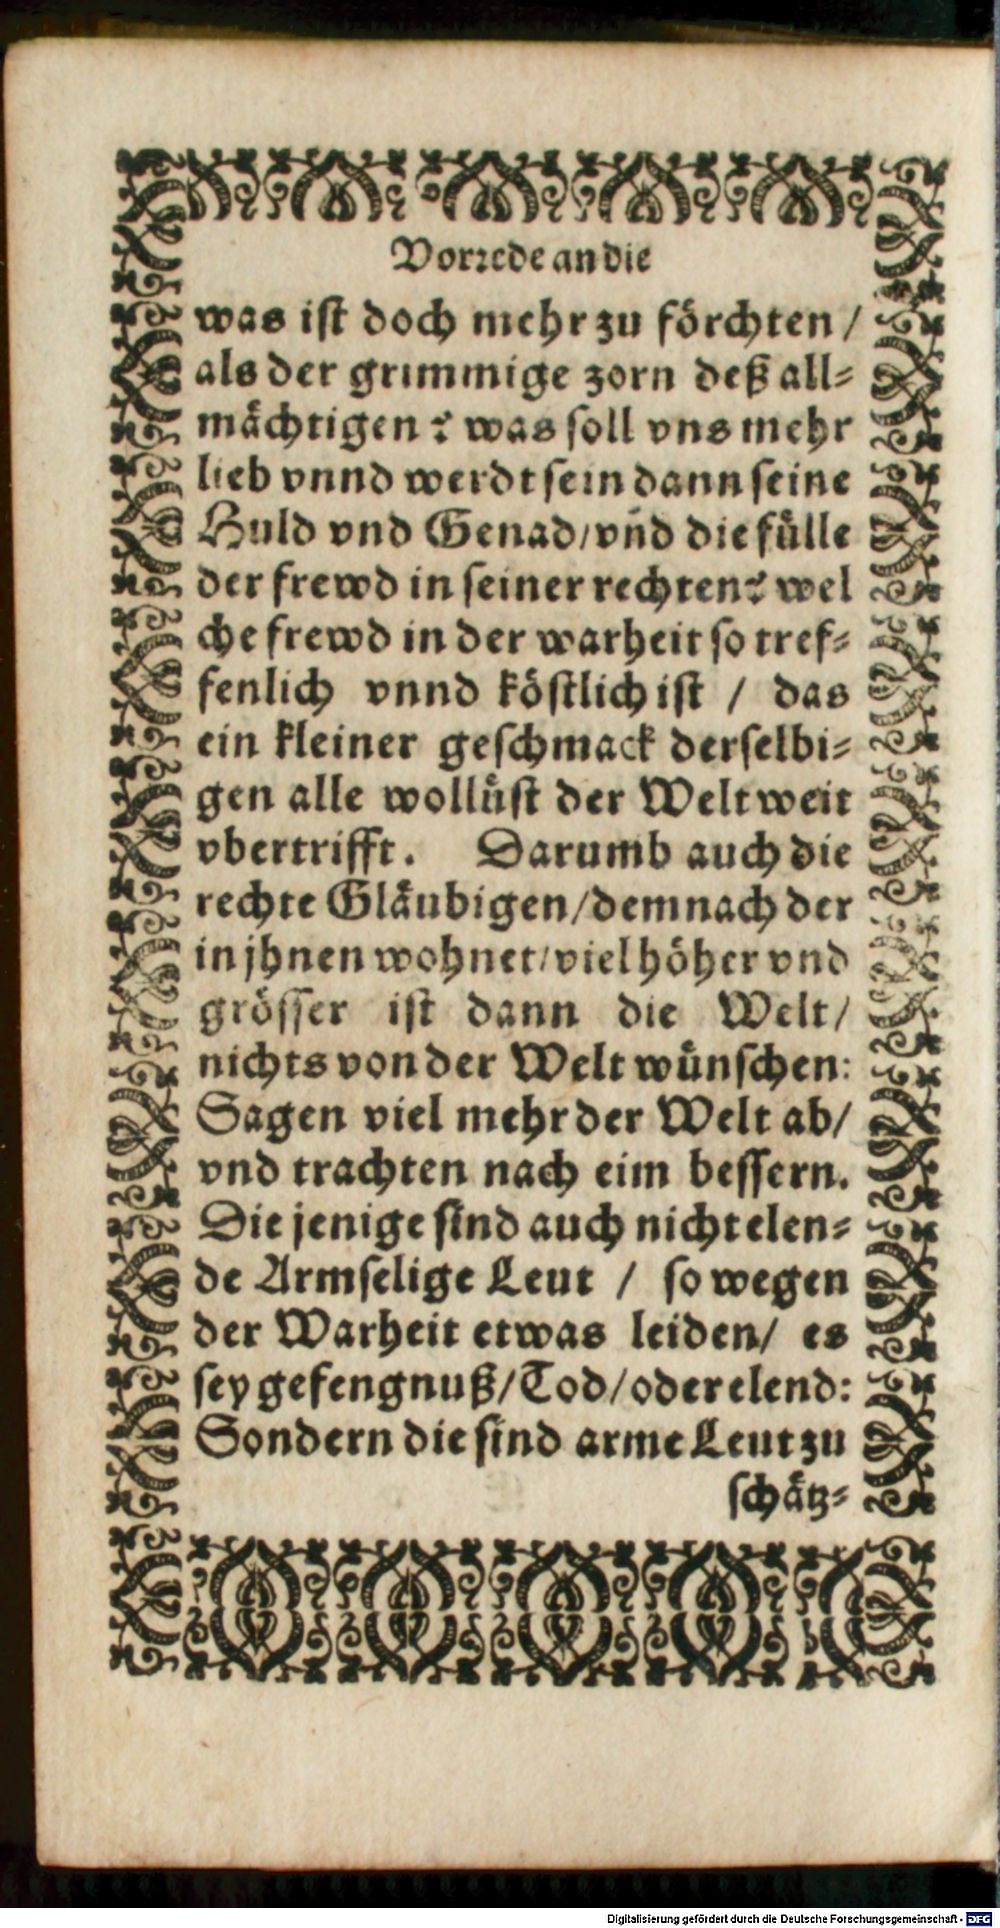 Vorrede an die
was ist doch mehr zu förchten /
als der grimmige zorn deß all⸗
mächtigen? was soll vns mehr
lieb vnnd werdt sein dann seine
Huld vnd Genad / vñd die fülle
der frewd in seiner rechten? wel
che frewd in der warheit so tref⸗
fenlich vnnd köstlich ist / das
ein kleiner geschmack derselbi⸗
gen alle wollüst der Welt weit
vbertrifft. Darumb auch die
rechte Gläubigen / demnach der
in jhnen wohnet / viel höher vnd
grösser ist dann die Welt /
nichts von der Welt wünschen:
Sagen viel mehr der Welt ab /
vnd trachten nach eim bessern.
Die jenige sind auch nicht elen⸗
de Armselige Leut / so wegen
der Warheit etwas leiden / es
sey gefengnuß / Tod / oder elend:
Sondern die sind arme Leut zu
schätz⸗
Digitalisierung gefördert durch die Deutsche Forschungsgemeinschaft - DFG